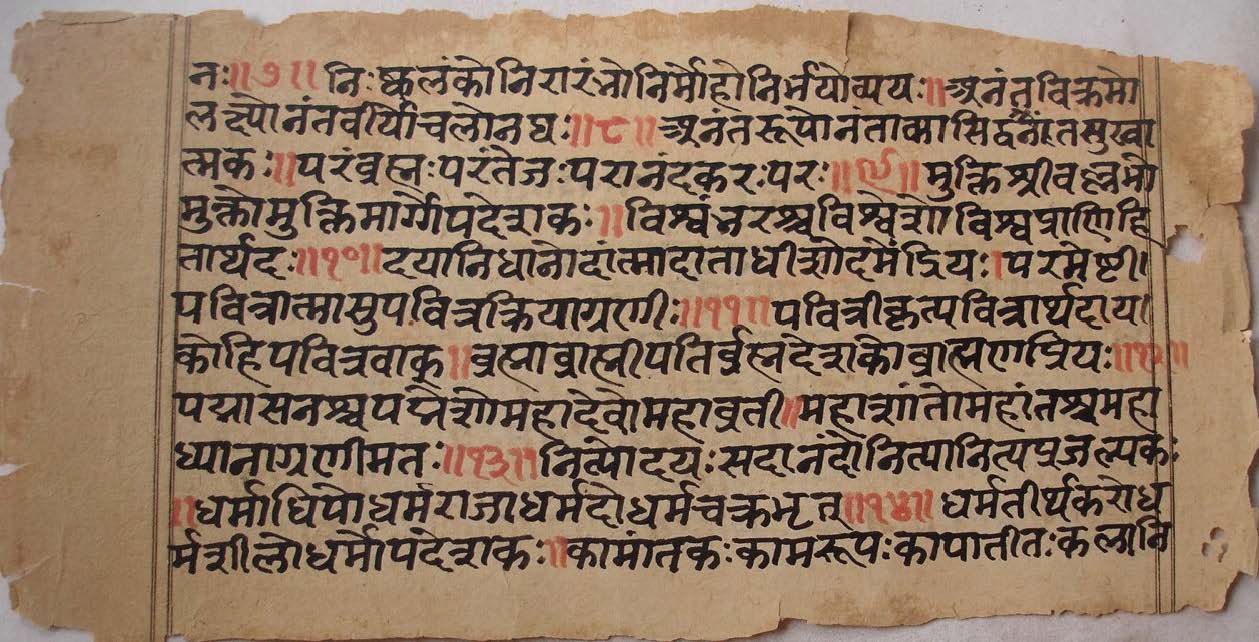 नः॥७॥ निःकलंकोनिरारंभोनिर्मोहोनिर्भयोव्ययः॥अनंतविक्रमो
लक्ष्योनंतवीर्योचलोनघः॥८॥अनंतरूपोनंतात्मासिद्धनोंतसुखा
त्मकः॥परंब्रह्मःपरंतेजःपरानंदकरःपरः॥९॥मुक्तिश्रीवल्लभो
मुक्तोमुक्तिमार्गोपदेशकः॥विश्वंभरश्चविश्वेशोविश्वप्राणिहि
तार्थदः॥१०॥दयानिधानोदांत्मादाताधीशोदमेंद्रियः।परमेष्टी।
पवित्रात्मासुपवित्रक्रियाग्रणीः॥११॥पवित्रीकृत्पवित्रार्थदाय।
कोहिपवित्रवाक्॥ब्रह्माब्राह्मीपतिर्ब्रह्मदेशकोब्राह्मणप्रियः॥१२॥
पद्मासनश्चपद्मेशोमहादेवोमहाव्रती॥महाशांतोमहांतश्चमहा
ध्यानाग्रणीमतः॥१३॥नित्योदयःसदानंदोनित्यानित्यप्रजल्पकः
॥धर्माधिपोधर्मराजाधर्मदोधर्मचक्रभृत्॥१४॥धर्मतीर्थकरोध
र्मशीलोधर्मोपदेशकः॥कामांतकःकामरूपःकापातीतःकलानि